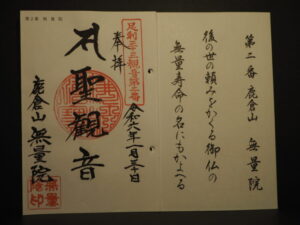 第二番鹿倉山　無量院
後の世の頼みをかくる御仏の
無量寿命の名にもかよへる
足利三十三観音第二番
奉拝
令和六年一月三十日
聖観音
鹿倉山　無量院